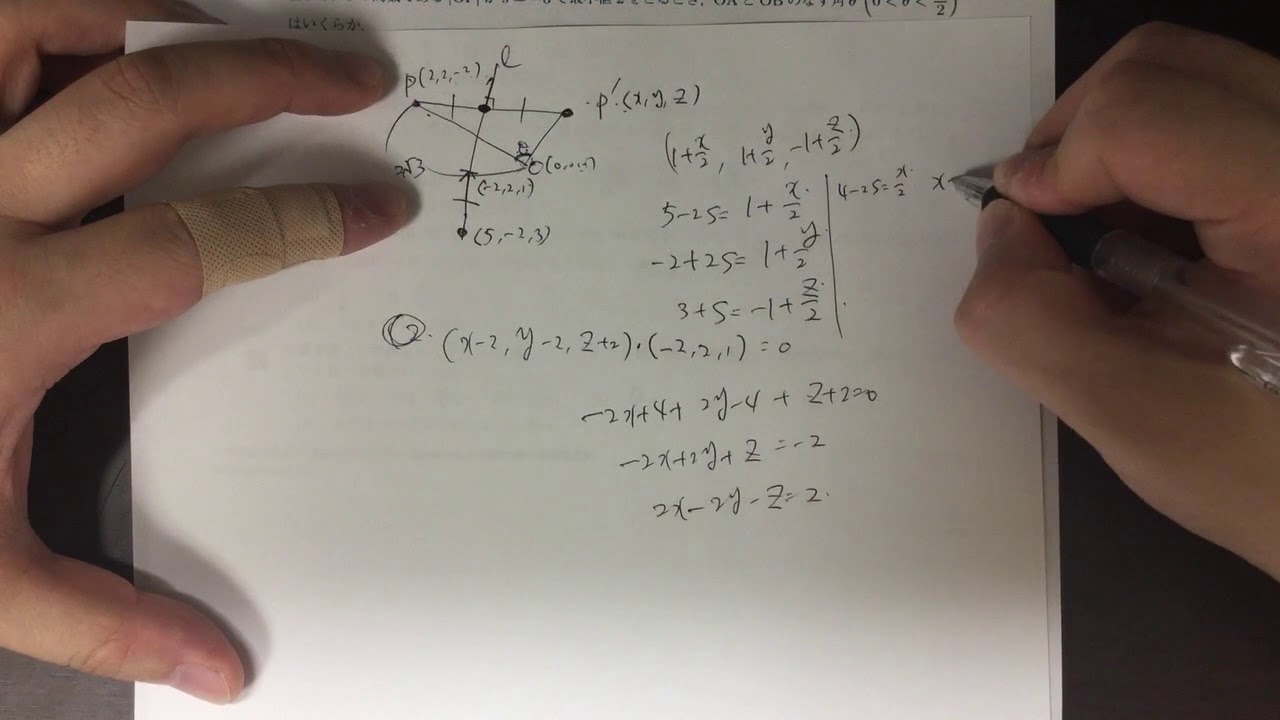 はいくらか.
l
P(2,2,-2)
P'(x,y,z)
O(0,0,0)
θ
2√3
(-2,2,1)
(5,-2,3)
(1+x/2, 1+y/2, -1+z/2)
5-2s=1+x/2
-2+2s=1+y/2
3+s=-1+z/2
4-2s=x/2
x
② (x-2, y-2, z+2)・(-2,2,1)=0
-2x+4+2y-4+z+2=0
-2x+2y+z=-2
2x-2y-z=2